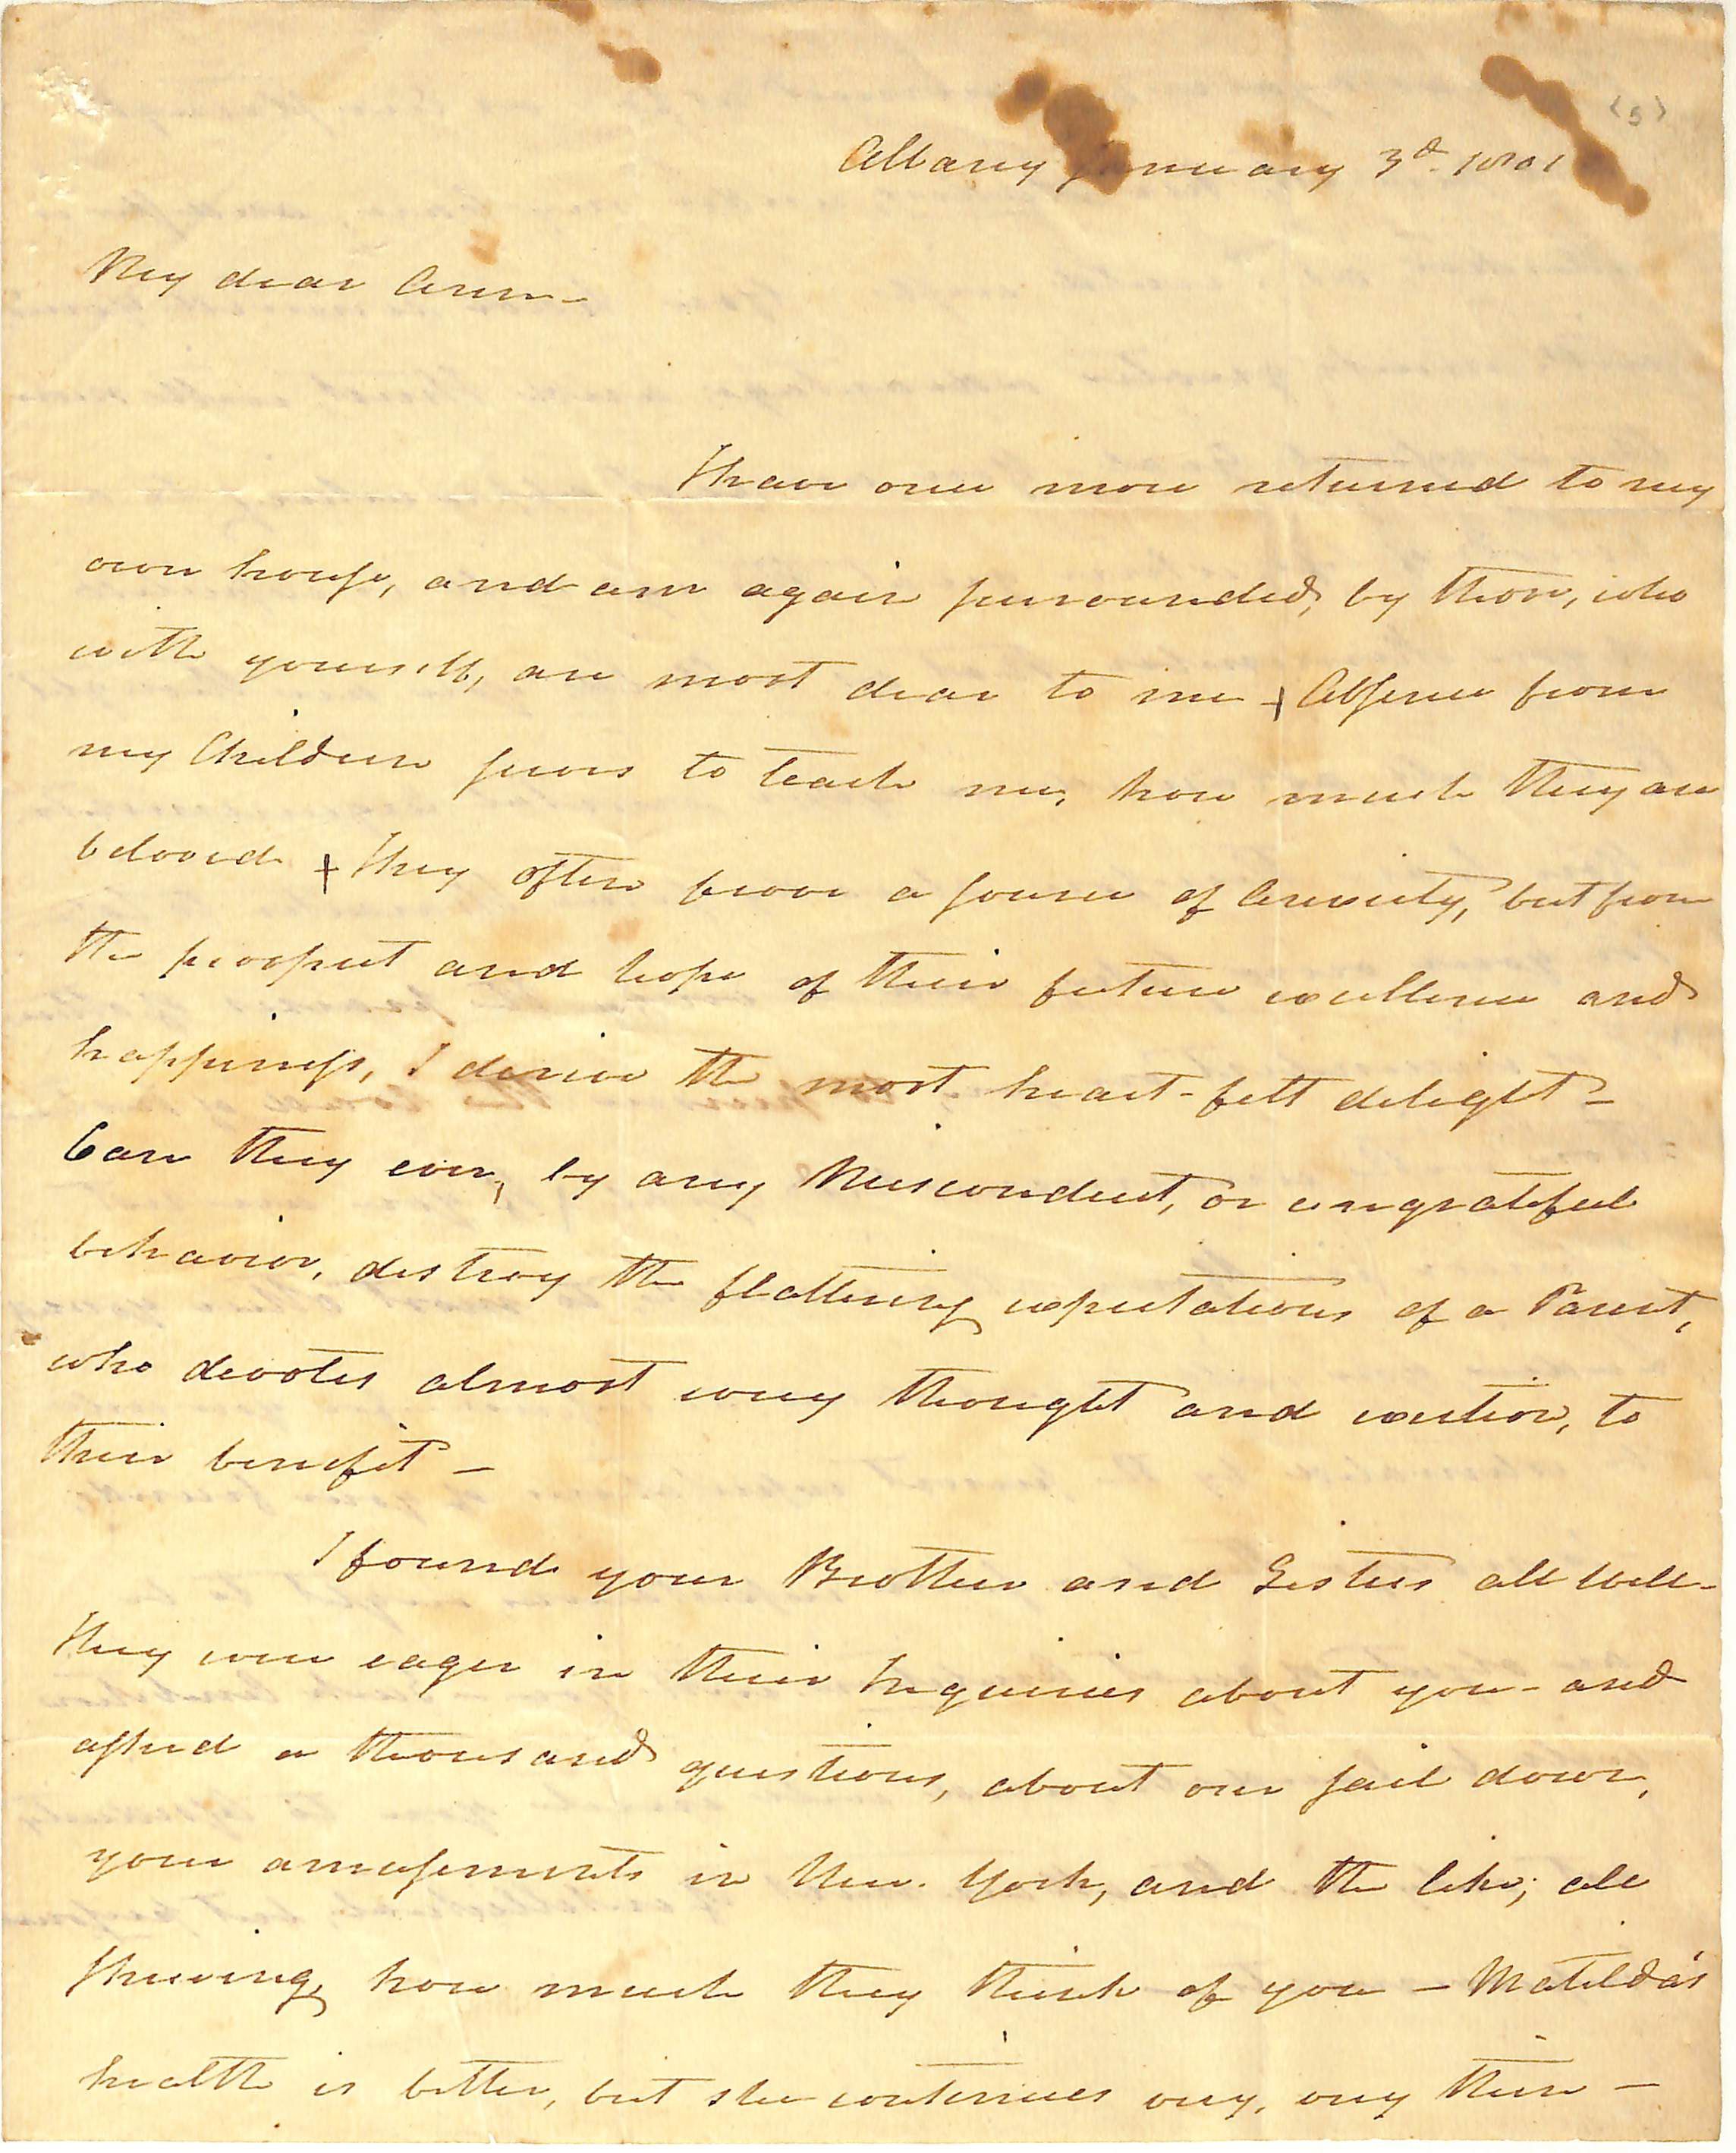 (5)
Albany January 3d. 1801
My dear Ann—
I have once more returned to my
own house, and am again surrounded, by those, who
with yourself, are most dear to me + Absence from
my Children serves to teach me, how much they are
beloved + they often prove a source of Anxiety, but from
the prospect and hope of their future excellence and
happiness, I derive the most heart-felt delight—
Can they ever, by any Misconduct, or ungrateful
behavior, destroy the flattering expectations of a Parent,
who devotes almost every thought and exertion, to
their benefit —
I found your Brother and Sisters all well—
they were eager in their Inquiries about you — and
asked a thousand questions, about our sail down,
your amusements in New-York, and the like; all
shewing, how much they think of you — Matilda's
health is better, but she continues very, very thin —